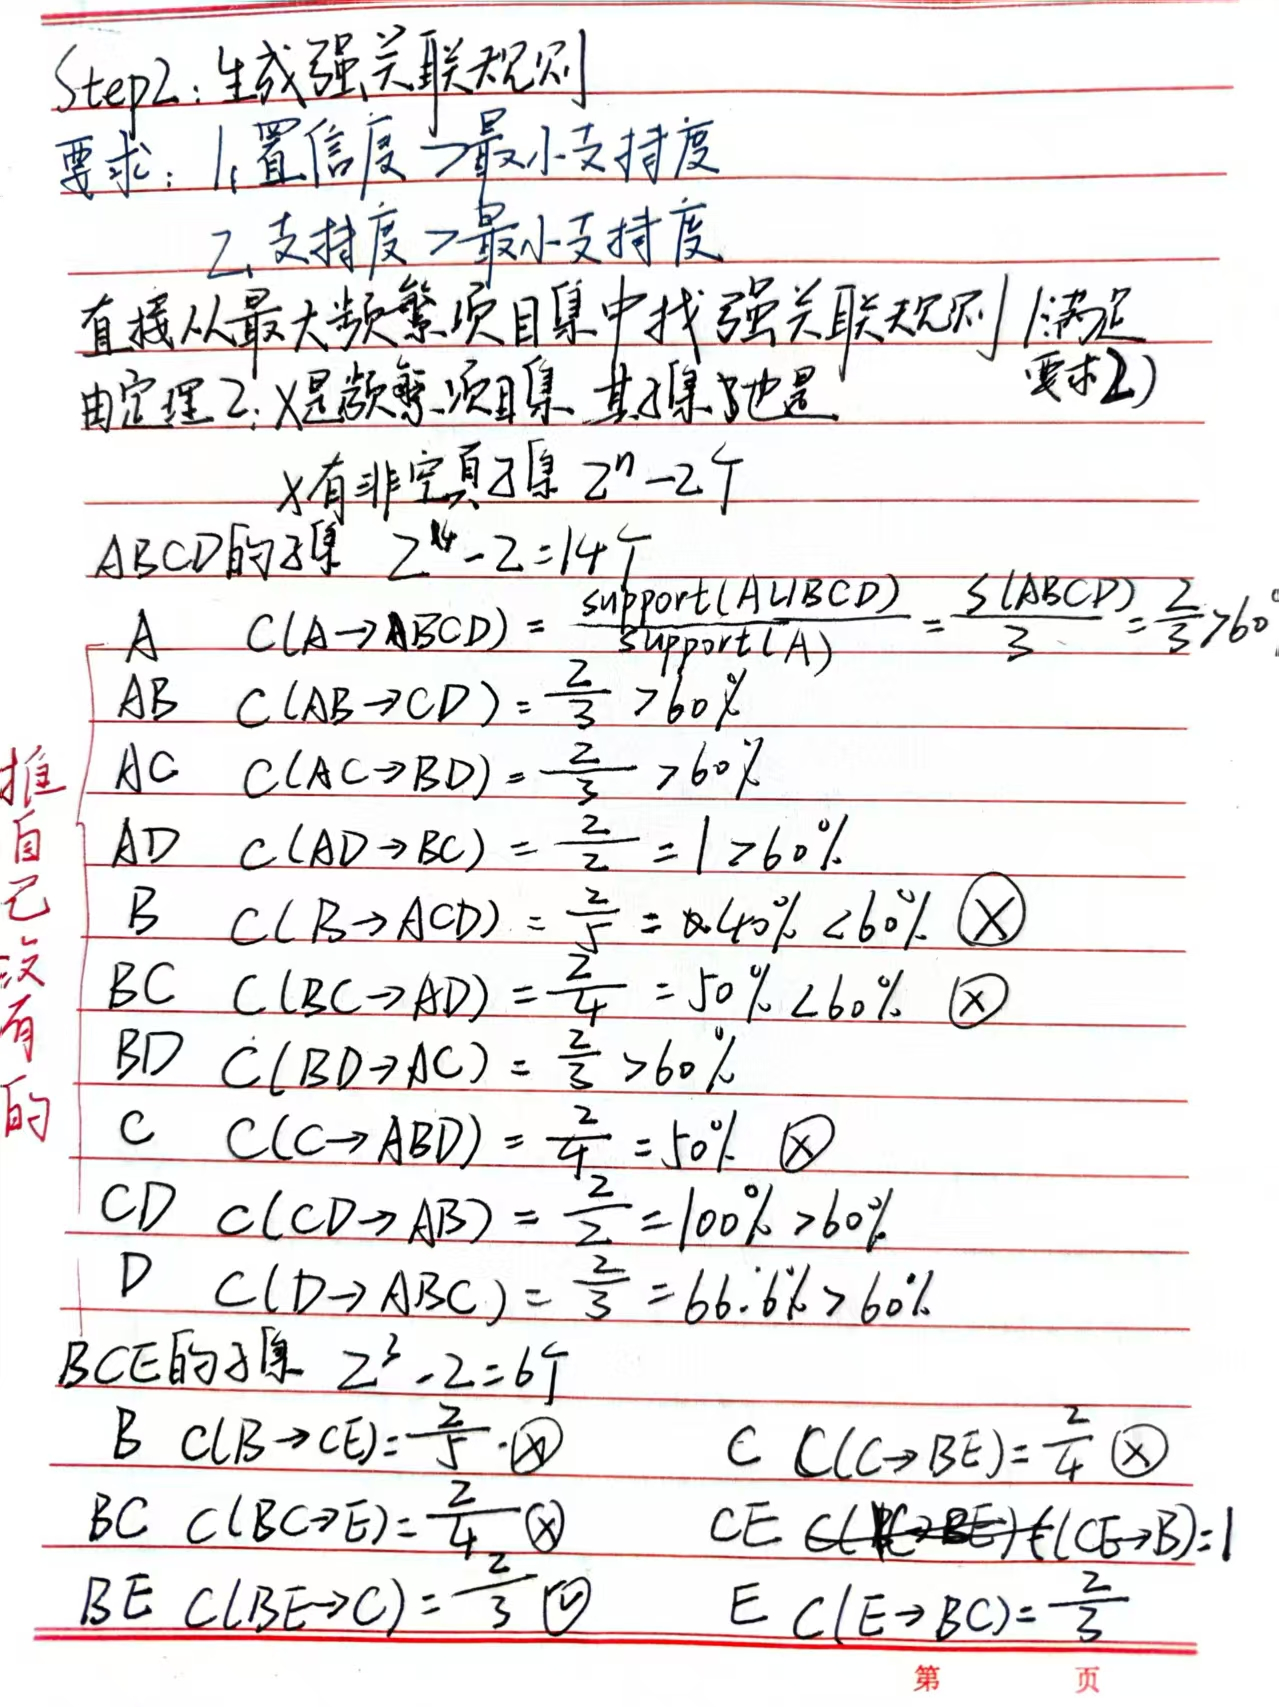 Step2: 生成强关联规则
要求: 1. 置信度 >最小支持度
2. 支持度 >最小支持度
直接从最大频繁项目集中找强关联规则 (满足要求2)
由定理2: X是频繁项目集 其子集也是
X有非空真子集 2ⁿ-2个
ABCD的子集 2⁴-2=14个
A C(A→BCD) = support(A∪BCD)/support(A) = S(ABCD)/3 = 2/3 >60%
AB C(AB→CD) = 2/3 >60%
AC C(AC→BD) = 2/3 >60%
AD C(AD→BC) = 2/2 = 1 >60%
B C(B→ACD) = 2/5 = 40% <60% ⊗
BC C(BC→AD) = 2/4 = 50% <60% ⊗
BD C(BD→AC) = 2/3 >60%
C C(C→ABD) = 2/4 = 50% ⊗
CD C(CD→AB) = 2/2 = 100% >60%
D C(D→ABC) = 2/3 = 66.6% >60%
推自己没有的
BCE的子集 2³-2=6个
B C(B→CE)=2/5 ⊗ C C(C→BE)=2/4 ⊗
BC C(BC→E)=2/4 ⊗ CE C(CE→B)=1
BE C(BE→C)=2/3 ✓ E C(E→BC)=2/3
第 页